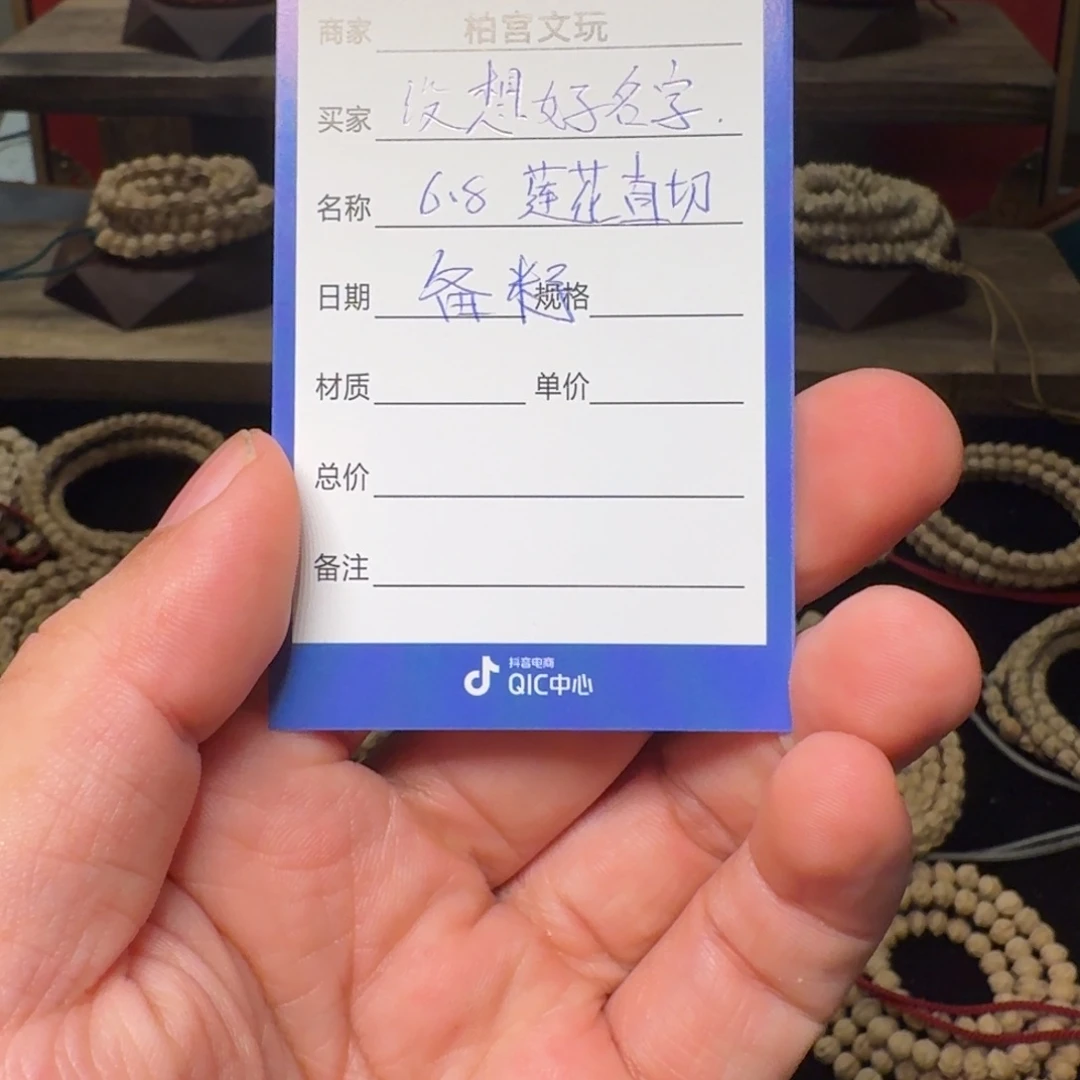 商家 柏宫文玩
买家 没想好名字.
名称 6.8 莲花直切
日期 备 规格
材质 单价
总价
备注
抖音电商
QIC中心